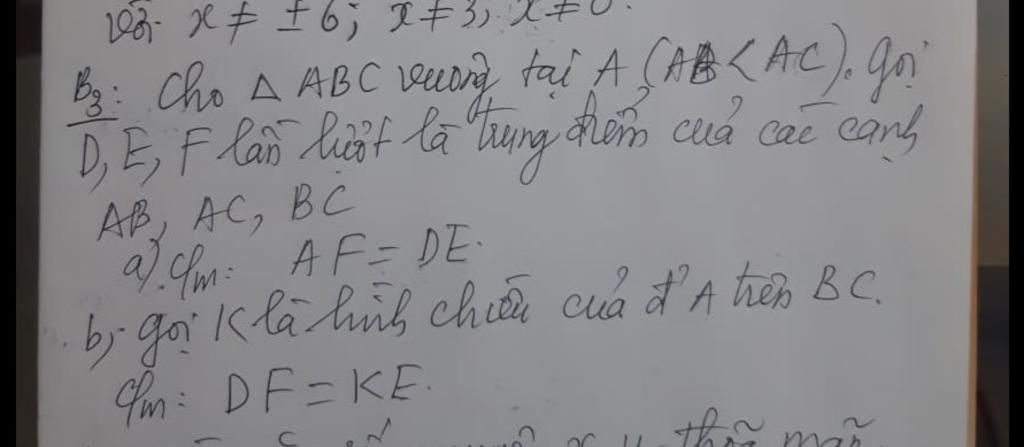 Với x ≠ ± 6; x ≠ 3; x ≠ 0.
B3: Cho △ ABC vuông tại A (AB < AC). gọi
D, E, F lần lượt là trung điểm của các cạnh
AB, AC, BC
a). Cm: AF = DE.
b, gọi K là hình chiếu của đ' A trên BC.
Cm: DF = KE.
x y thỏa mãn